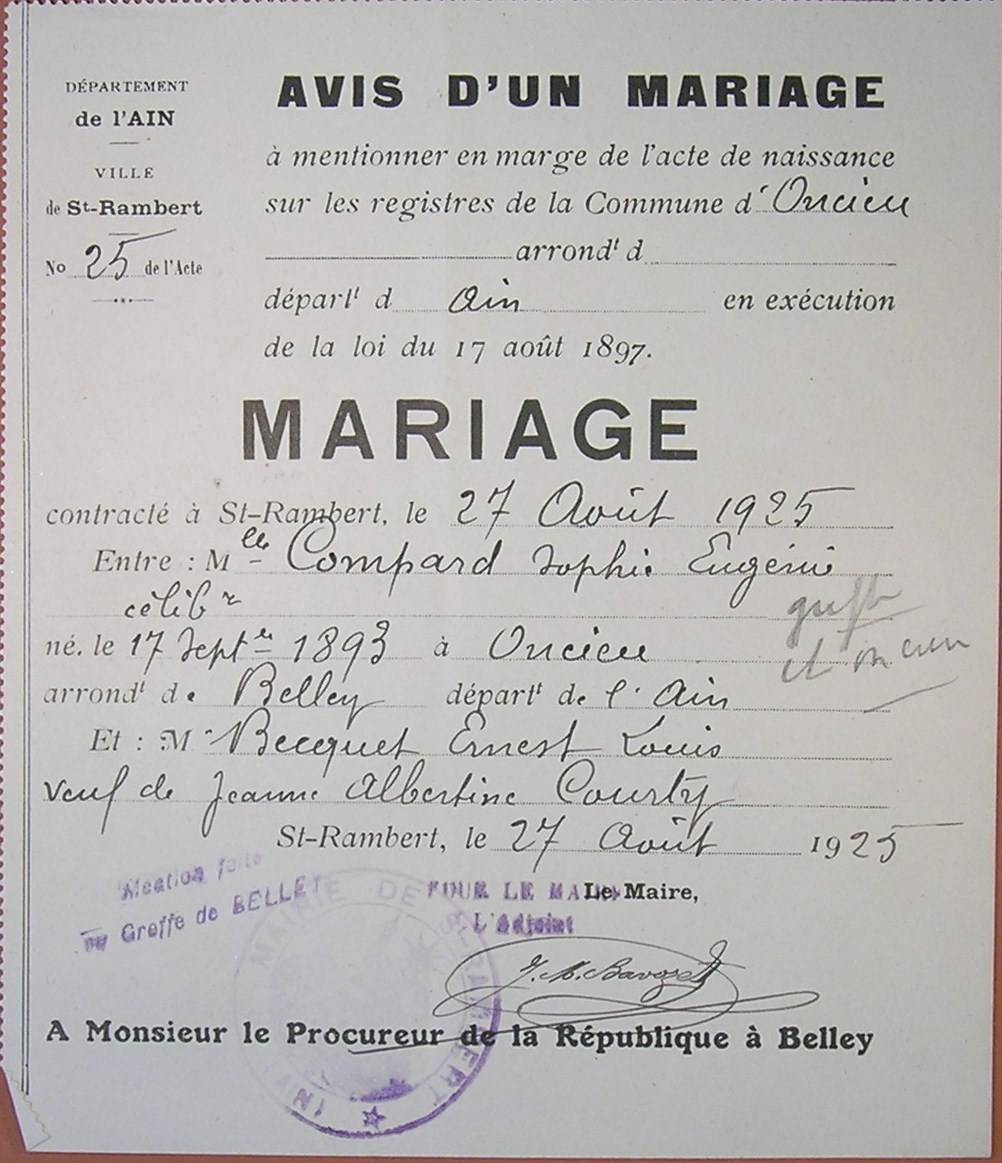 DÉPARTEMENT
de l'AIN
VILLE
de St-Rambert
No 25 de l'Acte
AVIS D'UN MARIAGE
à mentionner en marge de l'acte de naissance
sur les registres de la Commune d' Oncieu
arrondt d
départt d Ain en exécution
de la loi du 17 août 1897.
MARIAGE
contracté à St-Rambert, le 27 Août 1925
Entre : M lle Compard Sophie Eugénie
célibre
né. le 17 Septre 1893 à Oncieu
arrondt de Belley départt de l'Ain
Et : M r Becquet Ernest Louis
veuf de Jeanne Albertine Courty
St-Rambert, le 27 Août 1925
Mention faite
au Greffe de BELLEY
POUR LE MAIRE Le Maire,
L'Adjoint
MAIRIE DE ST-RAMBERT (AIN)
A Monsieur le Procureur de la République à Belley